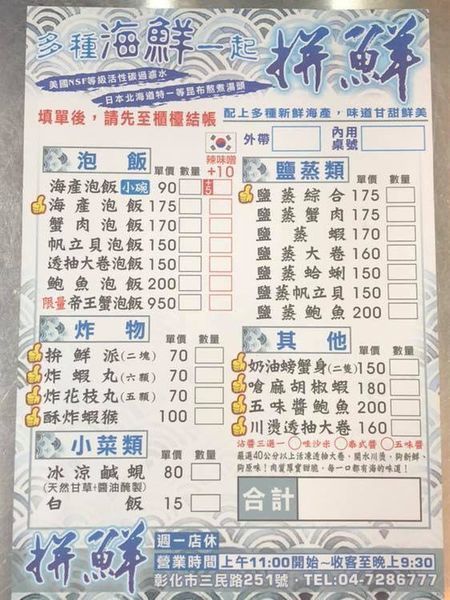 多種海鮮一起 拼鮮
美國NSF等級活性碳過濾水
日本北海道特一等昆布熬煮湯頭
填單後，請先至櫃檯結帳
配上多種新鮮海產，味道甘甜鮮美
外帶
內用桌號
泡飯 單價 數量 辣味噌+10
海產泡飯 小碗 90 +5
海產泡飯 175
蟹肉泡飯 170
帆立貝泡飯 150
透抽大卷泡飯 150
鮑魚泡飯 200
限量帝王蟹泡飯 950
鹽蒸類 單價 數量
鹽蒸綜合 175
鹽蒸蟹肉 175
鹽蒸蝦 170
鹽蒸大卷 160
鹽蒸蛤蜊 150
鹽蒸帆立貝 150
鹽蒸鮑魚 200
炸物 單價 數量
拚鮮派(二塊) 70
炸蝦丸(六顆) 70
炸花枝丸(五顆) 70
酥炸蝦猴 100
其他 單價 數量
奶油螃蟹身(二隻) 150
嗆麻胡椒蝦 180
五味醬鮑魚 200
川燙透抽大卷 160
沾醬三選一 ○哇沙米 ○泰式醬 ○五味醬
嚴選40公分以上活凍透抽大卷，開水川燙，夠新鮮、
夠原味！肉質厚實甜脆，每一口都有海的味道！
小菜類 單價 數量
冰涼鹹蜆 80
(天然甘草+醬油醃製)
白飯 15
合計
拼鮮
週一店休
營業時間 上午11:00開始~收客至晚上9:30
彰化市三民路251號・TEL:04-7286777